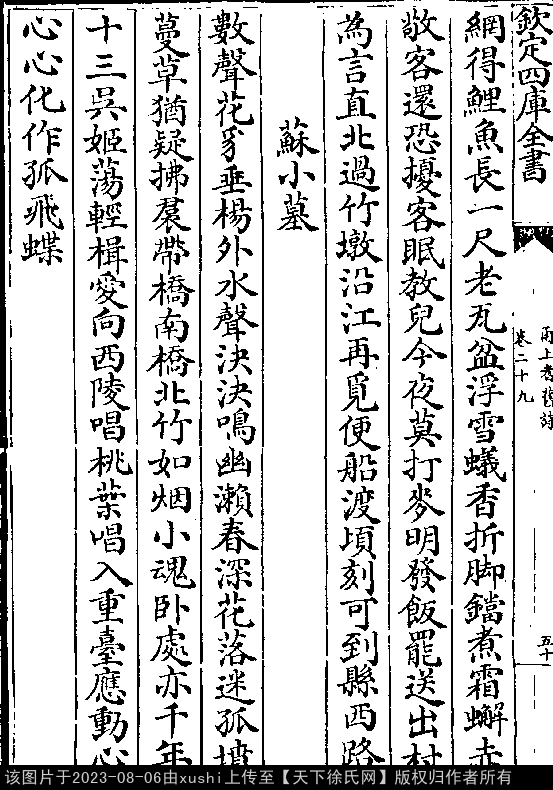 欽定四庫全書
甬上耆舊詩
卷二十九
五十
網得鯉魚長一尺老瓦盆浮雪蟻香折脚鐺煮霜蠏赤
敬客還恐擾客眠教兒今夜莫打麥明發飯罷送出村
為言直北過竹墩沿江再覓便船渡頃刻可到縣西路
蘇小墓
數聲花豸垂楊外水聲決決鳴幽瀨春深花落迷孤墳
蔓草猶疑拂裠帶橋南橋北竹如烟小魂卧處亦千年
十三吳姬蕩輕楫愛向西陵唱桃葉唱入重臺應動心
心心化作孤飛蝶
该图片于2023-08-06由xushi上传至【天下徐氏网】版权归作者所有